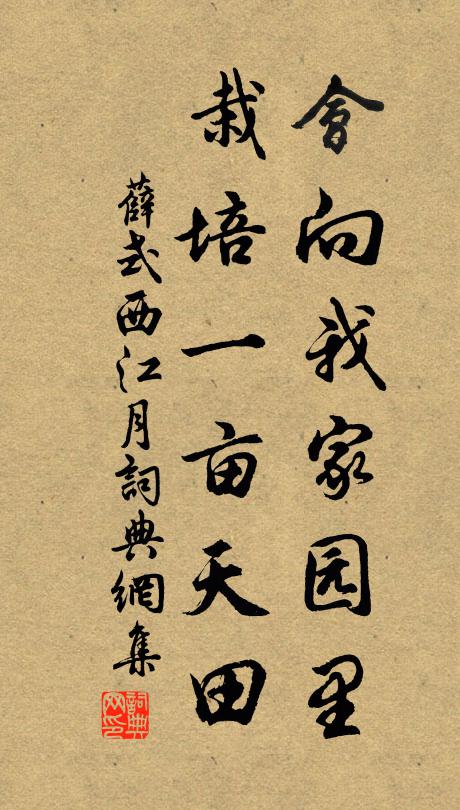 會向我家园里
栽培一亩天田
薛式西江月詞典網集
詞典网印